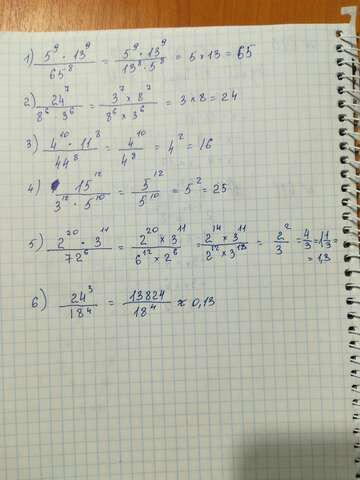 1) 5^9 · 13^9 / 65^8 = 5^9 · 13^9 / 13^8 · 5^8 = 5 × 13 = 65
2) 24^7 / 8^6 · 3^6 = 3^7 × 8^7 / 8^6 × 3^6 = 3 × 8 = 24
3) 4^10 · 11^8 / 44^8 = 4^10 / 4^8 = 4^2 = 16
4) 15^12 / 3^12 · 5^10 = 5^12 / 5^10 = 5^2 = 25
5) 2^20 · 3^11 / 72^6 = 2^20 × 3^11 / 6^12 × 2^6 = 2^14 × 3^11 / 2^12 × 3^12 = 2^2 / 3 = 4/3 = 1 1/3 =
= 1,3
6) 24^3 / 18^4 = 13824 / 18^4 ≈ 0,13